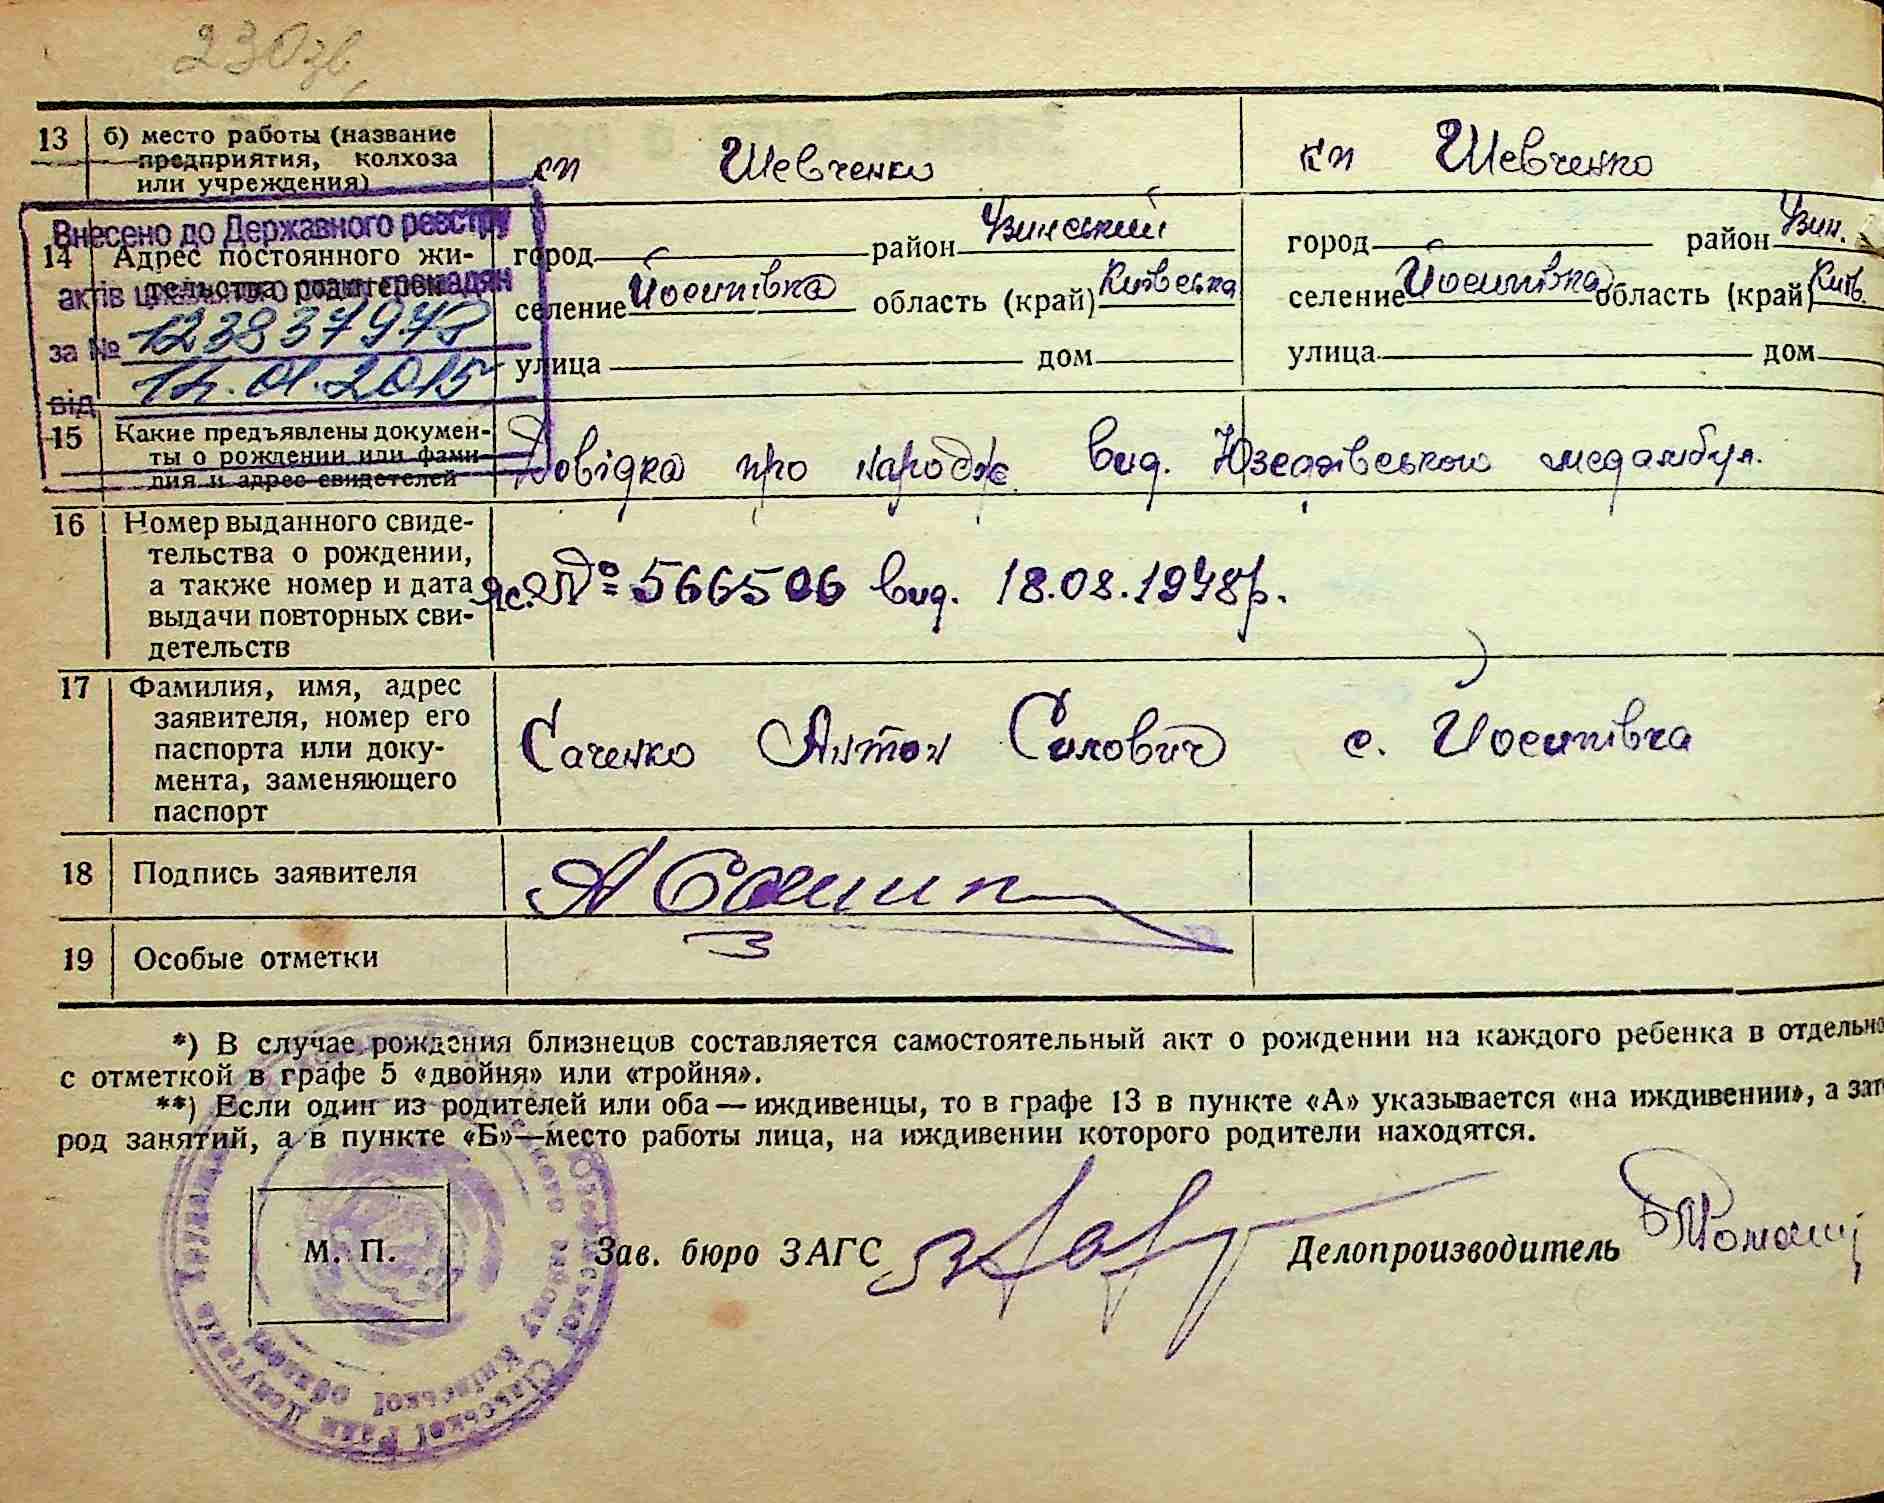 230зв.
13 б) место работы (название предприятия, колхоза или учреждения) кп Шевченко кп Шевченко
Внесено до Державного реєстру
актів цивільного стану громадян
за № 123837978
від 14.01.2015
14 Адрес постоянного жительства родителей
город район Узинський город район Узин.
селение Йосипівка область (край) Київська селение Йосипівка область (край) Київ.
улица дом улица дом
15 Какие предъявлены документы о рождении или фамилия и адрес свидетелей
Довідка про народж вид. Юзефівською медамбул.
16 Номер выданного свиде-
тельства о рождении,
а также номер и дата
выдачи повторных сви-
детельств
№ 566506 вид. 18.08.1948р.
17 Фамилия, имя, адрес
заявителя, номер его
паспорта или доку-
мента, заменяющего
паспорт
Саченко Антон Силович с. Йосипівка
18 Подпись заявителя
19 Особые отметки
*) В случае рождения близнецов составляется самостоятельный акт о рождении на каждого ребенка в отдельно
с отметкой в графе 5 «двойня» или «тройня».
**) Если один из родителей или оба — иждивенцы, то в графе 13 в пункте «А» указывается «на иждивении», а зат
род занятий, а в пункте «Б»—место работы лица, на иждивении которого родители находятся.
М. П.
Зав. бюро ЗАГС Делопроизводитель
Сільської Ради Депутатів Трудящих
Київської області